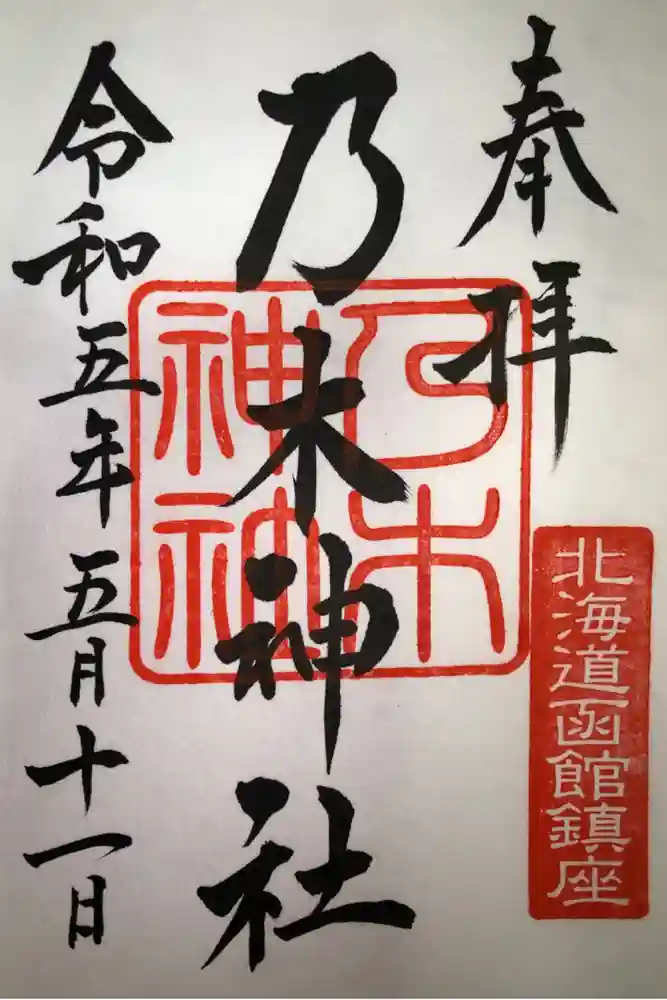 奉拝
北海道函館鎮座
乃木神社
乃木
神社
令和五年五月十一日